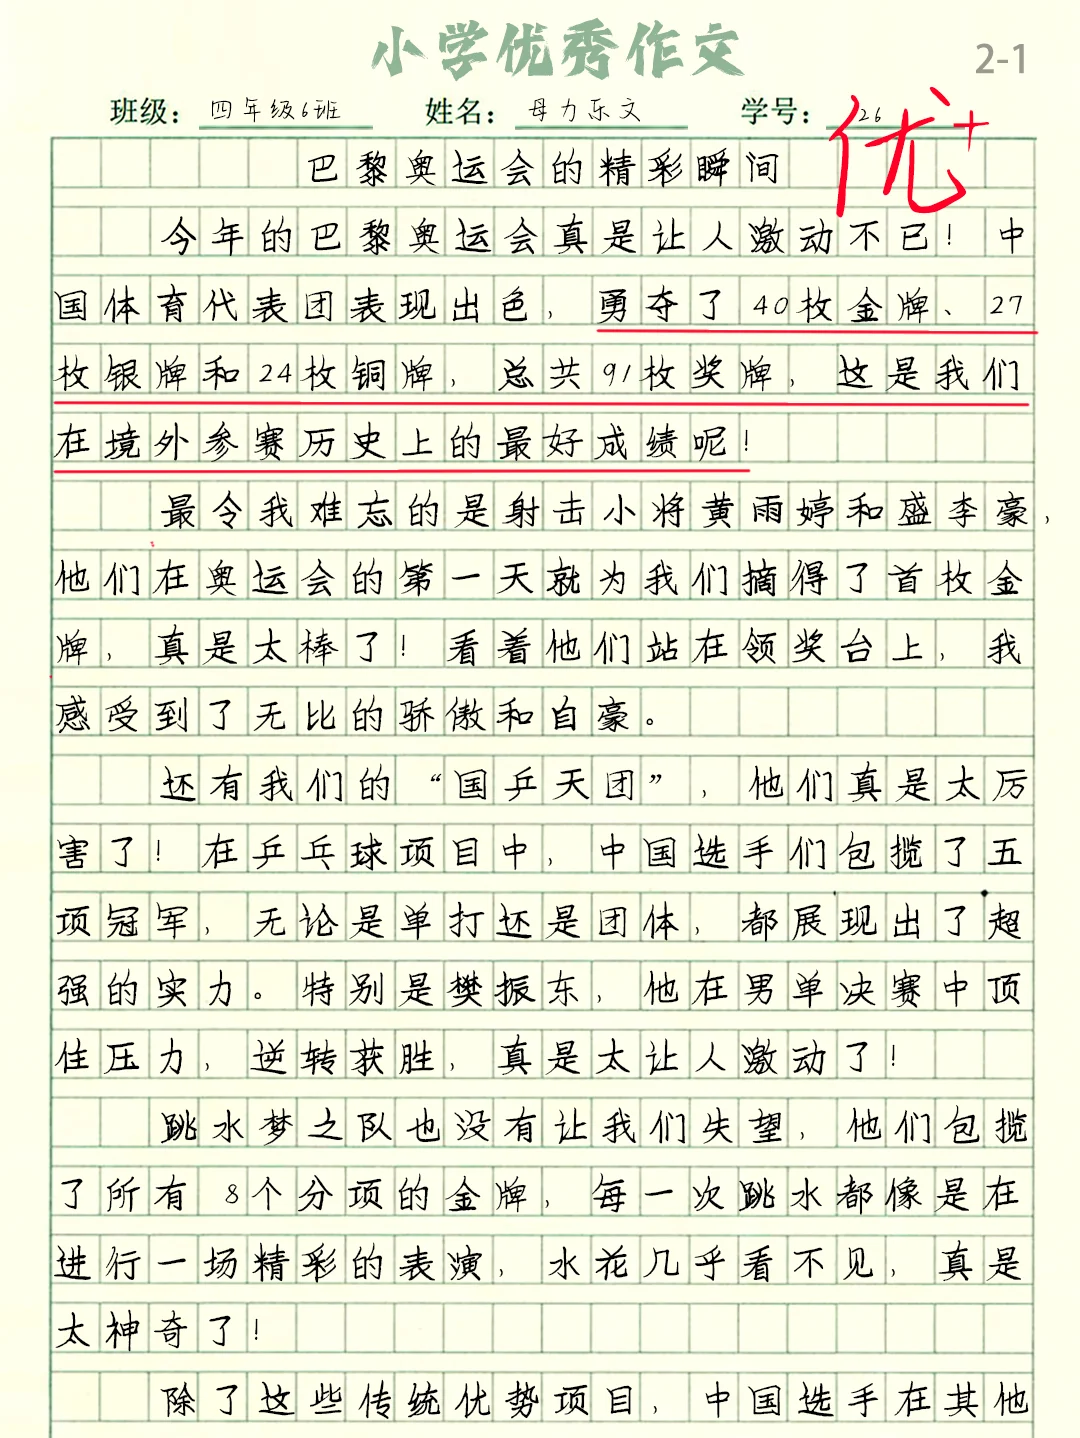 小学优秀作文
2-1
班级：四年级6班 姓名：母力乐文 学号：26
优+
巴黎奥运会的精彩瞬间
今年的巴黎奥运会真是让人激动不已！中
国体育代表团表现出色，勇夺了40枚金牌、27
枚银牌和24枚铜牌，总共91枚奖牌，这是我们
在境外参赛历史上的最好成绩呢！
最令我难忘的是射击小将黄雨婷和盛李豪，
他们在奥运会的第一天就为我们摘得了首枚金
牌，真是太棒了！看着他们站在领奖台上，我
感受到了无比的骄傲和自豪。
还有我们的“国乒天团”，他们真是太厉
害了！在乒乓球项目中，中国选手们包揽了五
项冠军，无论是单打还是团体，都展现出了超
强的实力。特别是樊振东，他在男单决赛中顶
住压力，逆转获胜，真是太让人激动了！
跳水梦之队也没有让我们失望，他们包揽
了所有8个分项的金牌，每一次跳水都像是在
进行一场精彩的表演，水花几乎看不见，真是
太神奇了！
除了这些传统优势项目，中国选手在其他